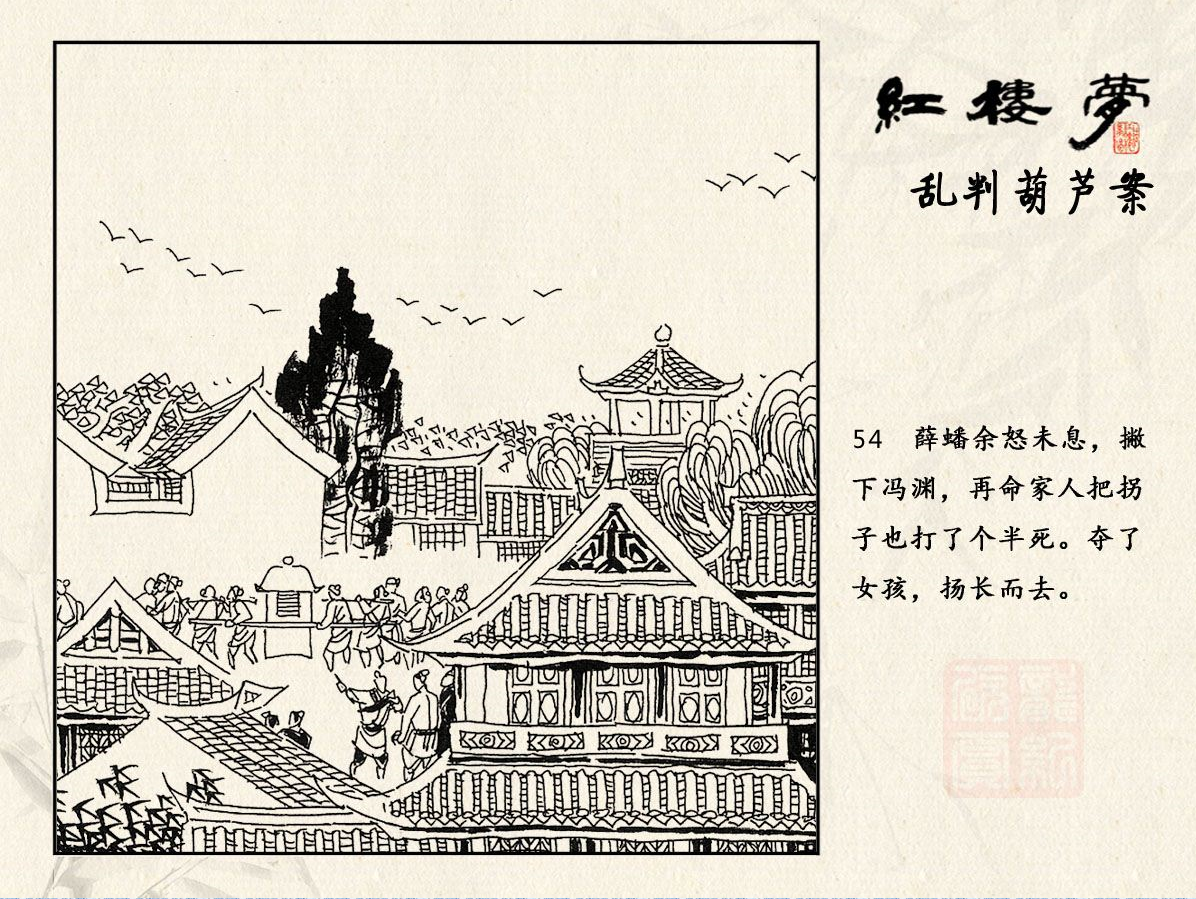 紅樓夢
乱判葫芦案
54 薛蟠余怒未息，撇
下冯渊，再命家人把拐
子也打了个半死。夺了
女孩，扬长而去。